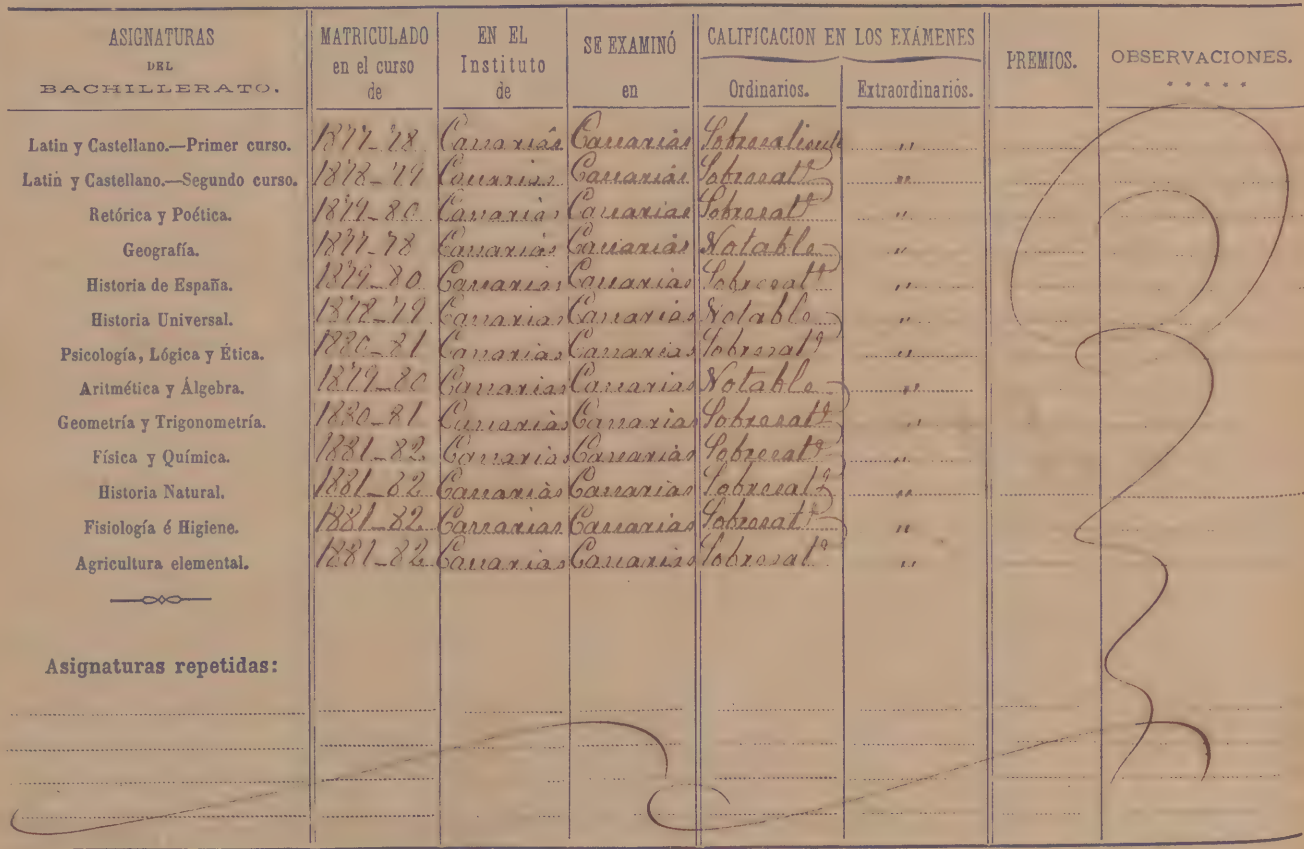 ASIGNATURAS DEL BACHILLERATO. MATRICULADO en el curso de EN EL Instituto de SE EXAMINÓ en CALIFICACION EN LOS EXÁMENES PREMIOS. OBSERVACIONES.
Ordinarios. Extraordinarios.
Latin y Castellano.—Primer curso. 1877-78 Canarias Canarias Sobresaliente "
Latin y Castellano.—Segundo curso. 1878-79 Canarias Canarias Sobresalte "
Retórica y Poética. 1879-80 Canarias Canarias Sobresalte "
Geografía. 1877-78 Canarias Canarias Notable "
Historia de España. 1879-80 Canarias Canarias Sobresalte "
Historia Universal. 1878-79 Canarias Canarias Notable "
Psicología, Lógica y Ética. 1880-81 Canarias Canarias Sobresalte "
Aritmética y Álgebra. 1879-80 Canarias Canarias Notable "
Geometría y Trigonometría. 1880-81 Canarias Canarias Sobresalte "
Física y Química. 1881-82 Canarias Canarias Sobresalte "
Historia Natural. 1881-82 Canarias Canarias Sobresalte "
Fisiología é Higiene. 1881-82 Canarias Canarias Sobresalte "
Agricultura elemental. 1881-82 Canarias Canarias Sobresalte "
Asignaturas repetidas: